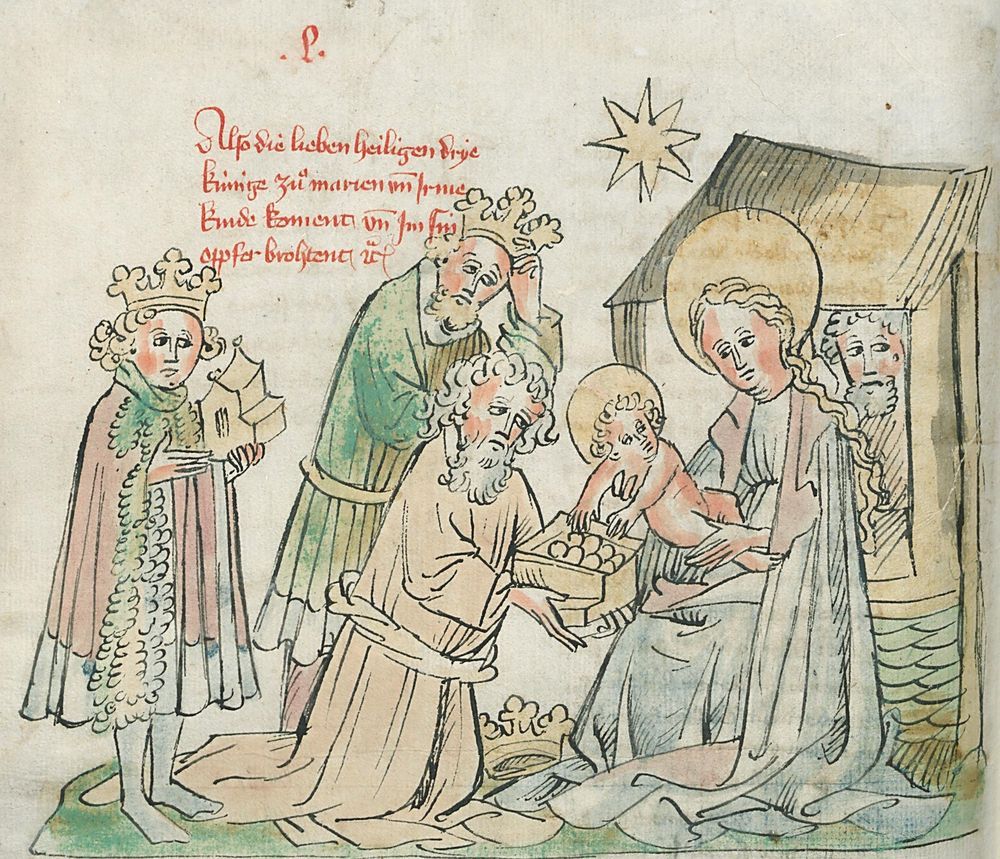 .l.
Also die lieben heiligen drÿe
künige zů marien vn̄ Irme
kinde koment vn̄ Im sin
opffer brohtent ꝛc̄